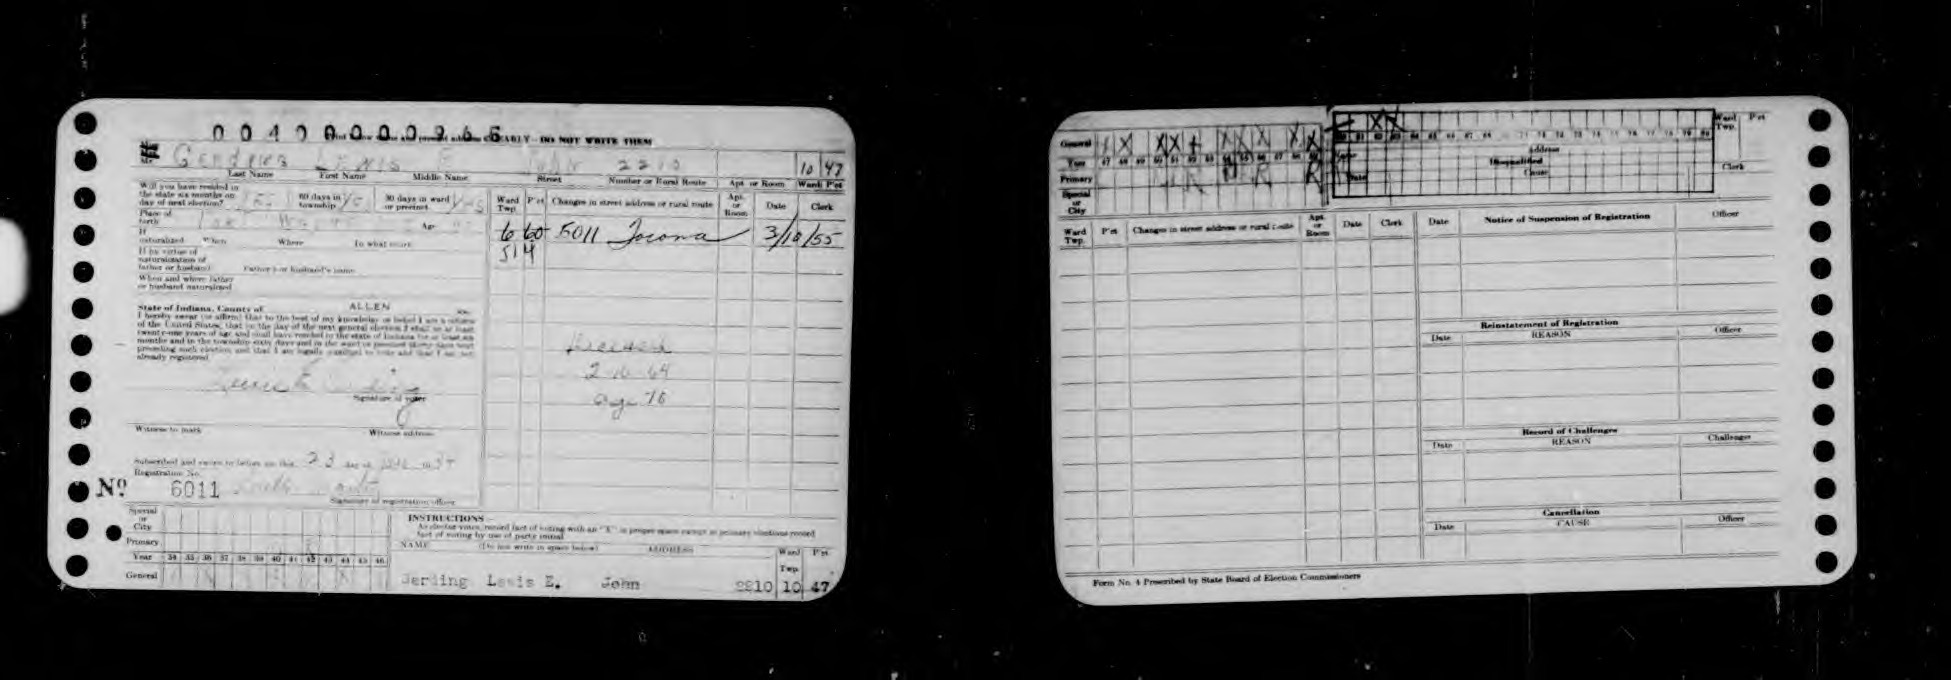 004000000266
DO NOT WRITE THEM
Mr. Gerding Lewis E John 2210 10 47
Last Name First Name Middle Name Street Number or Rural Route Apt. or Room Ward P'ct
Will you have resided in the state six months on day of next election? 60 days in township 30 days in ward or precinct
Place of birth Age
If naturalized When Where In what court
If by virtue of naturalization of father or husband Father's or husband's name
When and where father or husband naturalized
Ward Twp. P'ct Changes in street address or rural route Apt. or Room Date Clerk
6 60 5011 Tacoma 3/10/55
514
State of Indiana, County of ALLEN ss.
I hereby swear (or affirm) that to the best of my knowledge or belief I am a citizen
of the United States, that on the day of the next general election I shall be at least
twenty-one years of age and shall have resided in the state of Indiana for at least six
months and in the township sixty days and in the ward or precinct thirty days next
preceding such election and that I am legally qualified to vote and that I am not
already registered.
Deceased
2 16 64
age 76
Signature of voter
Witness to mark Witness address
Subscribed and sworn to before me this 23
Registration No.
Nº 6011
Signature of registration officer
Special or City
Primary
Year 34 35 36 37 38 39 40 41 42 43 44 45 46
General
INSTRUCTIONS
As elector votes, record fact of voting with an "X" in proper space except in primary elections record
fact of voting by use of party initial
NAME (Do not write in space below) ADDRESS Ward Twp. P'ct
Gerding Lewis E. John 2210 10 47
General X X X X X X X X X X X X
Year 47 48 49 50 51 52 53 54 55 56 57 58
Primary R R R R
Special or City
64 65 66 67 68 69 70 71 72 73 74 75 76 77 78 79 80
Address
Disqualified
Date Cause
Ward Twp. P'ct
Clerk
Ward Twp. P'ct Changes in street address or rural route Apt. or Room Date Clerk
Date Notice of Suspension of Registration Officer
Reinstatement of Registration
Date REASON Officer
Record of Challenges
Date REASON Challenger
Cancellation
Date CAUSE Officer
Form No. 4 Prescribed by State Board of Election Commissioners